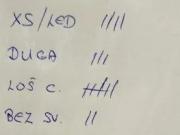 XS/LED ||||
DUGA |||
LOŠ C. ||||||
BEZ SV. ||